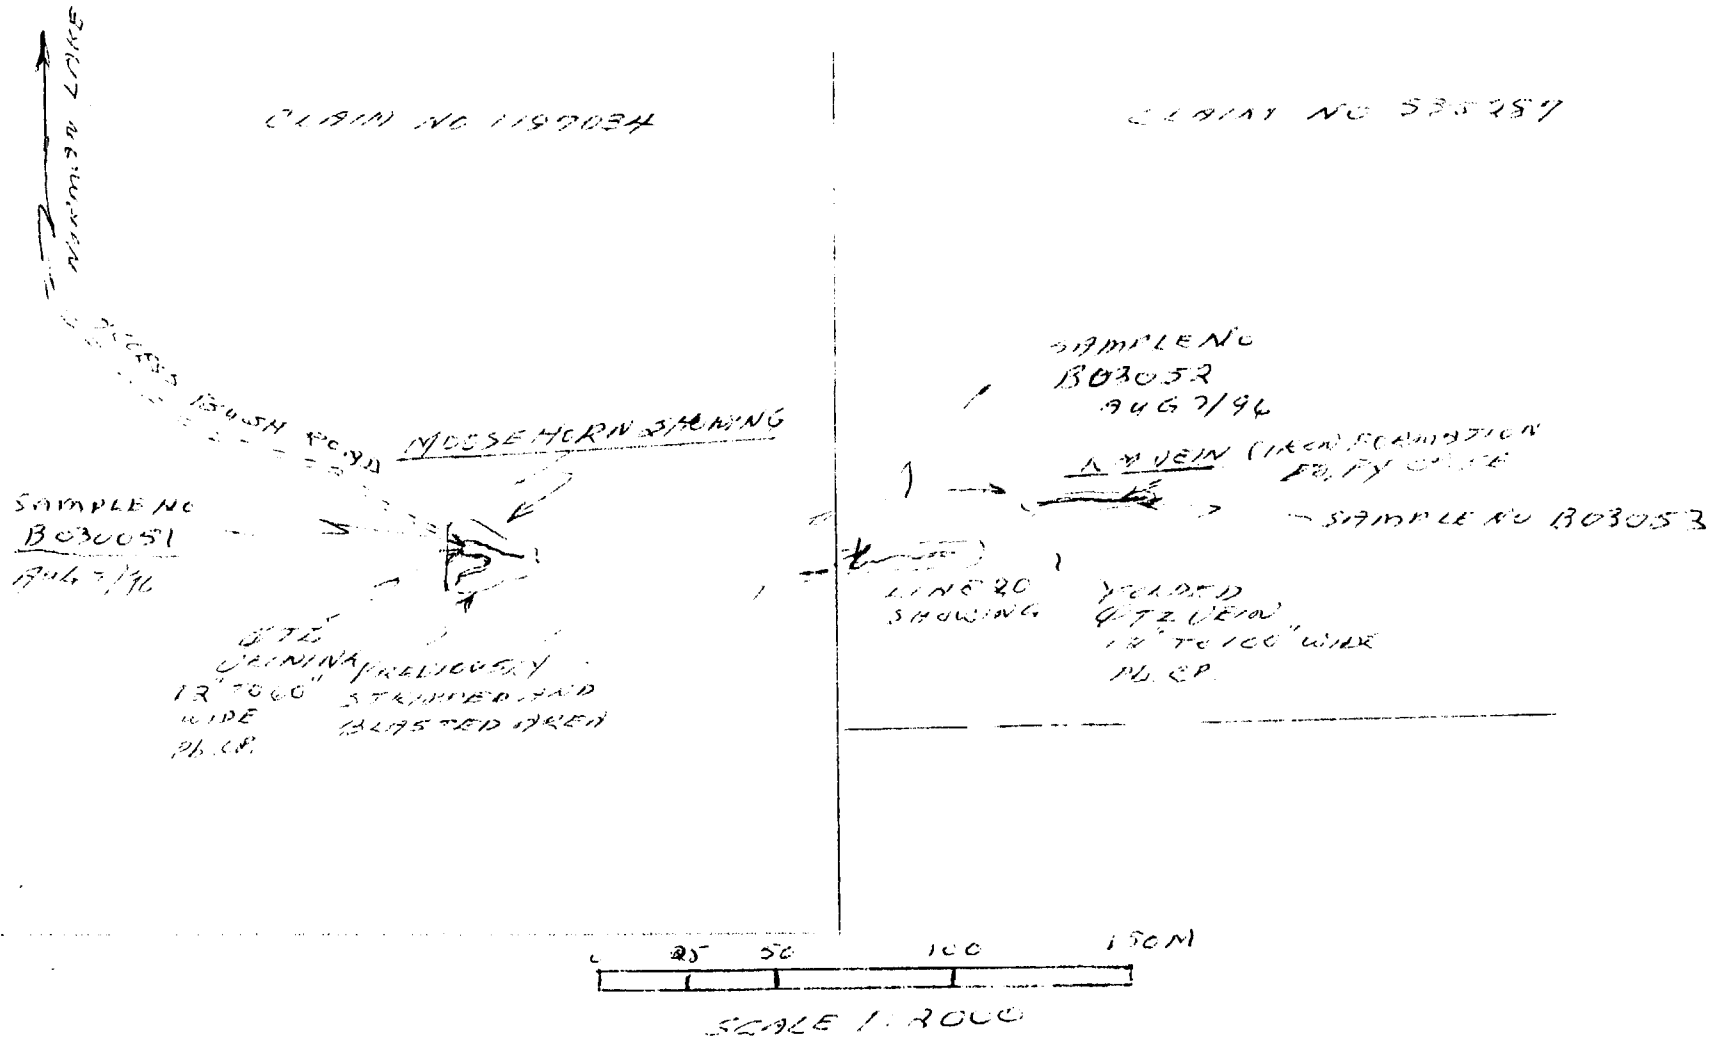 NEWMAN LAKE
CLAIM NO 1197034
CLAIM NO 535287
ACCESS BUSH ROAD
MOOSEHORN SHOWING
SAMPLE NO
B030051
AUG 7/96
QTZ
VEINING
12" TO 60"
WIDE
Pb. CP.
PREVIOUSLY
STRIPPED AND
BLASTED AREA
SAMPLE NO
B03052
AUG 7/96
VEIN (IRON) FORMATION
SAMPLE NO B03053
LINE 20
SHOWING
FOLDED
QTZ VEIN
12" TO 100" WIDE
Pb. CP.
0 25 50 100 150M
SCALE 1:2000